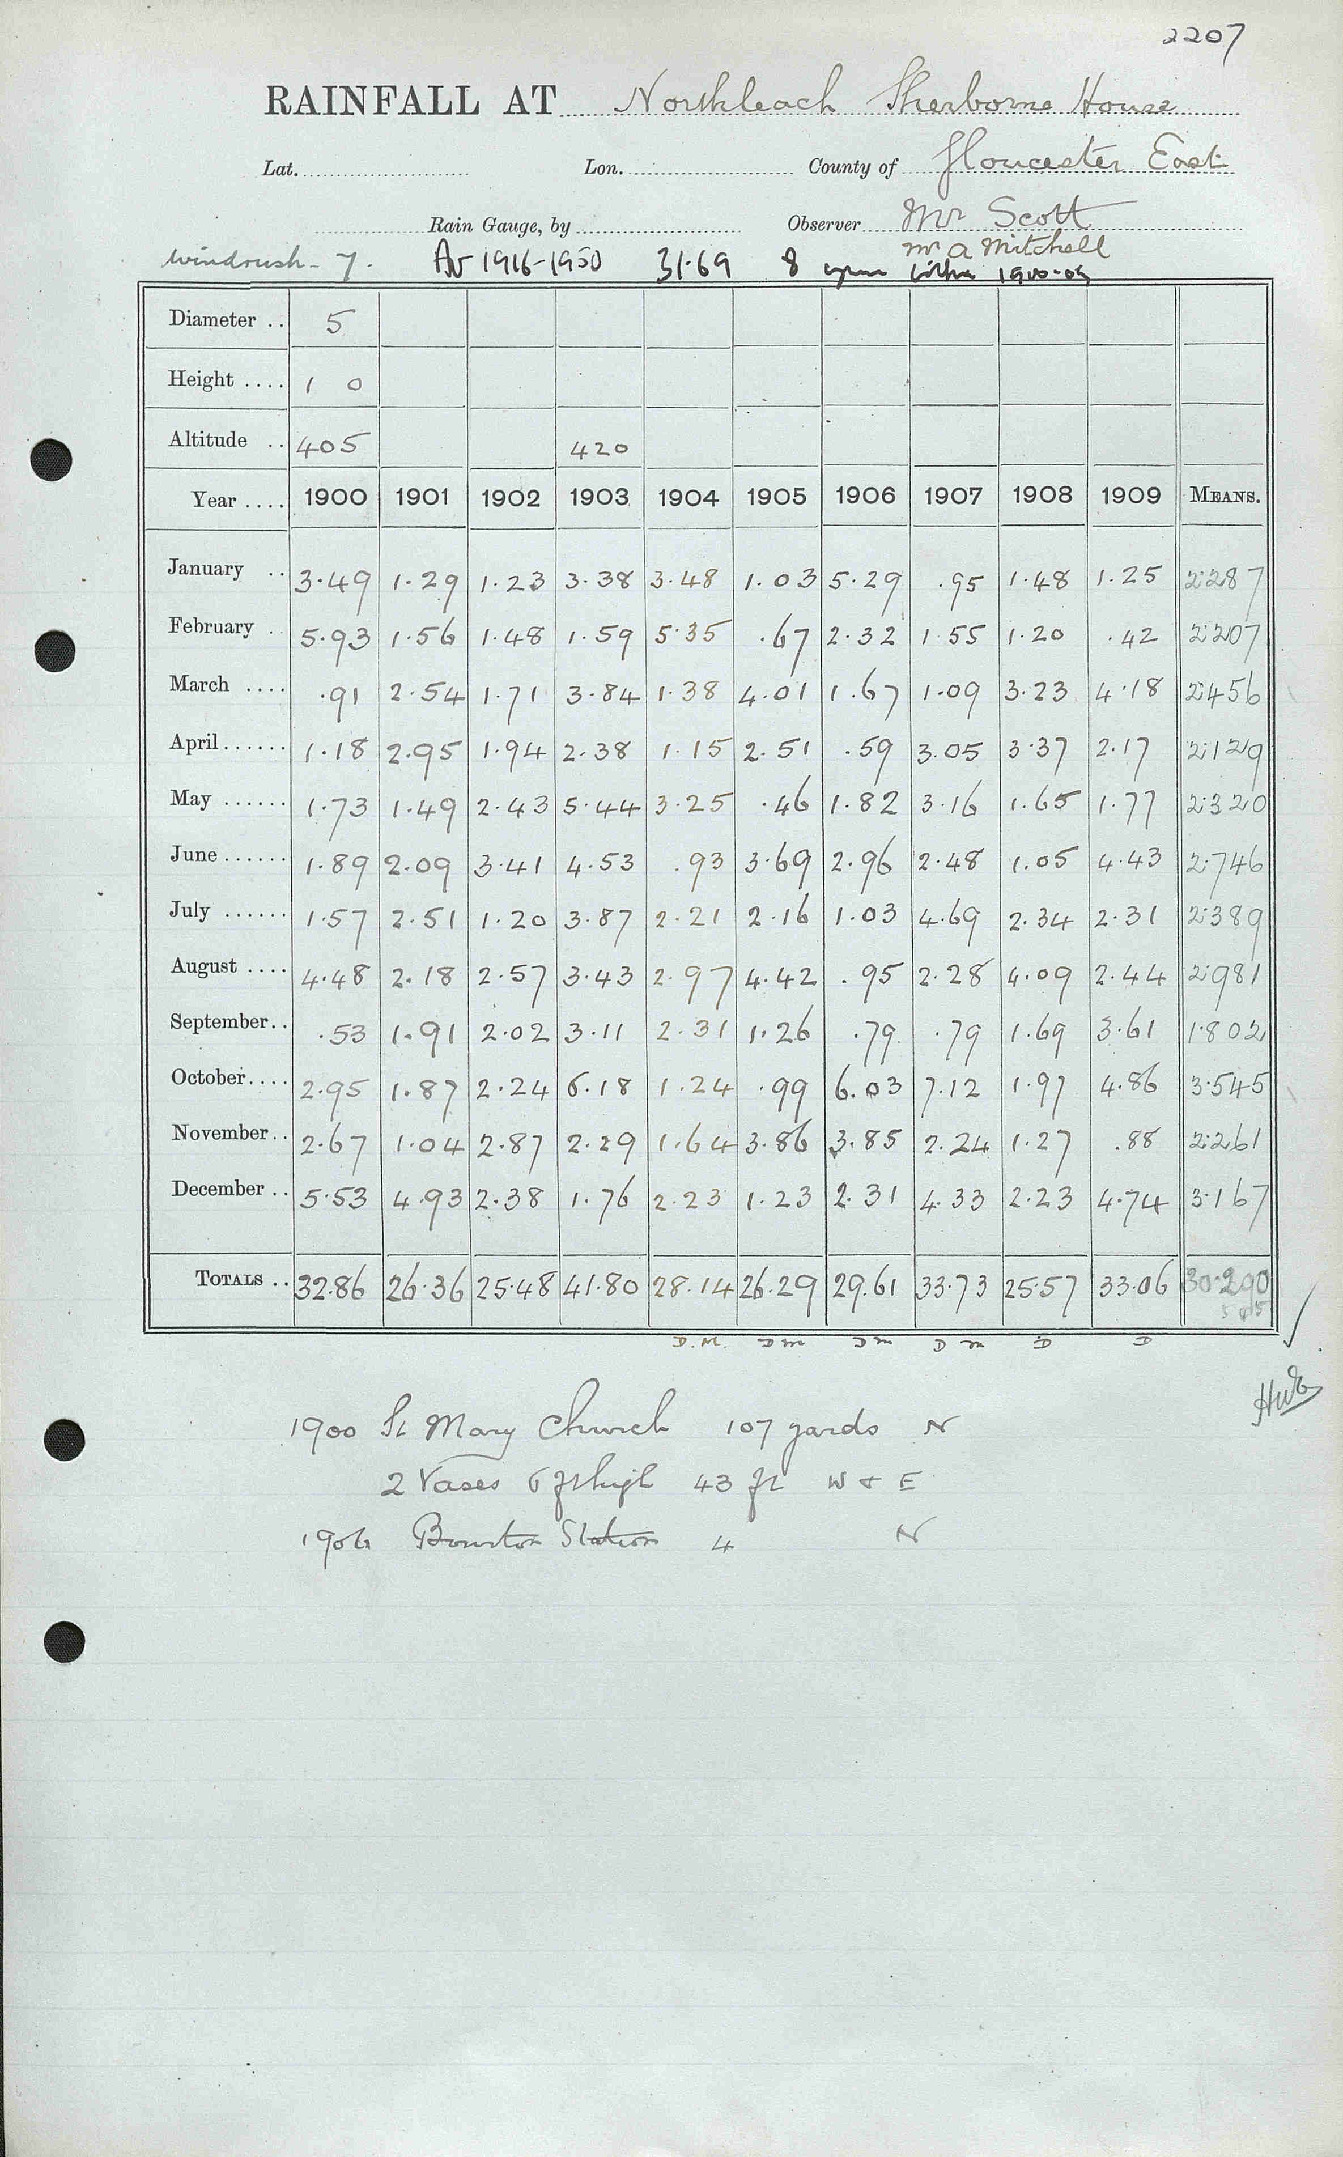 2207
RAINFALL AT Northleach Sherborne House
Lat. Lon. County of Gloucester East
Rain Gauge, by Observer Mr Scott
Mr A Mitchell
Windrush - 7. Av 1916-1950 31.69 8 1900-09
Diameter .. 5
Height .... 1 0
Altitude .. 405 420
Year .... 1900 1901 1902 1903 1904 1905 1906 1907 1908 1909 MEANS.
January .. 3.49 1.29 1.23 3.38 3.48 1.03 5.29 .95 1.48 1.25 2.287
February .. 5.93 1.56 1.48 1.59 5.35 .67 2.32 1.55 1.20 .42 2.207
March .... .91 2.54 1.71 3.84 1.38 4.01 1.67 1.09 3.23 4.18 2.456
April...... 1.18 2.95 1.94 2.38 1.15 2.51 .59 3.05 3.37 2.17 2.129
May ...... 1.73 1.49 2.43 5.44 3.25 .46 1.82 3.16 1.65 1.77 2.320
June...... 1.89 2.09 3.41 4.53 .93 3.69 2.96 2.48 1.05 4.43 2.746
July ...... 1.57 2.51 1.20 3.87 2.21 2.16 1.03 4.69 2.34 2.31 2.389
August .... 4.48 2.18 2.57 3.43 2.97 4.42 .95 2.28 4.09 2.44 2.981
September.. .53 1.91 2.02 3.11 2.31 1.26 .79 .79 1.69 3.61 1.802
October.... 2.95 1.87 2.24 6.18 1.24 .99 6.03 7.12 1.97 4.86 3.545
November.. 2.67 1.04 2.87 2.29 1.64 3.86 3.85 2.24 1.27 .88 2.261
December .. 5.53 4.93 2.38 1.76 2.23 1.23 2.31 4.33 2.23 4.74 3.167
TOTALS .. 32.86 26.36 25.48 41.80 28.14 26.29 29.61 33.73 25.57 33.06 30.290
D.M. D m D m D m D D
1900 St Mary Church 107 yards N
2 Vases 6 ft high 43 ft W & E
1906 Bourton Station 4 N